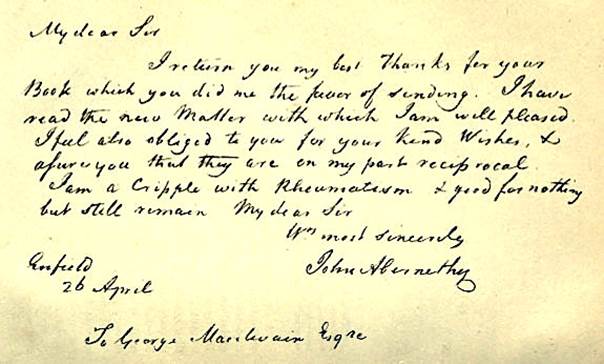 My dear Sir
I return you my best Thanks for your
Book which you did me the favor of sending. I have
read the new Matter with which I am well pleased.
I feel also obliged to you for your kind Wishes, &
assure you that they are on my part reciprocal.
I am a Cripple with Rheumatism & good for nothing
but still remain My dear Sir
Yrs most sincerely
John Abernethy
Enfield
26 April
To George Macilwain Esqre